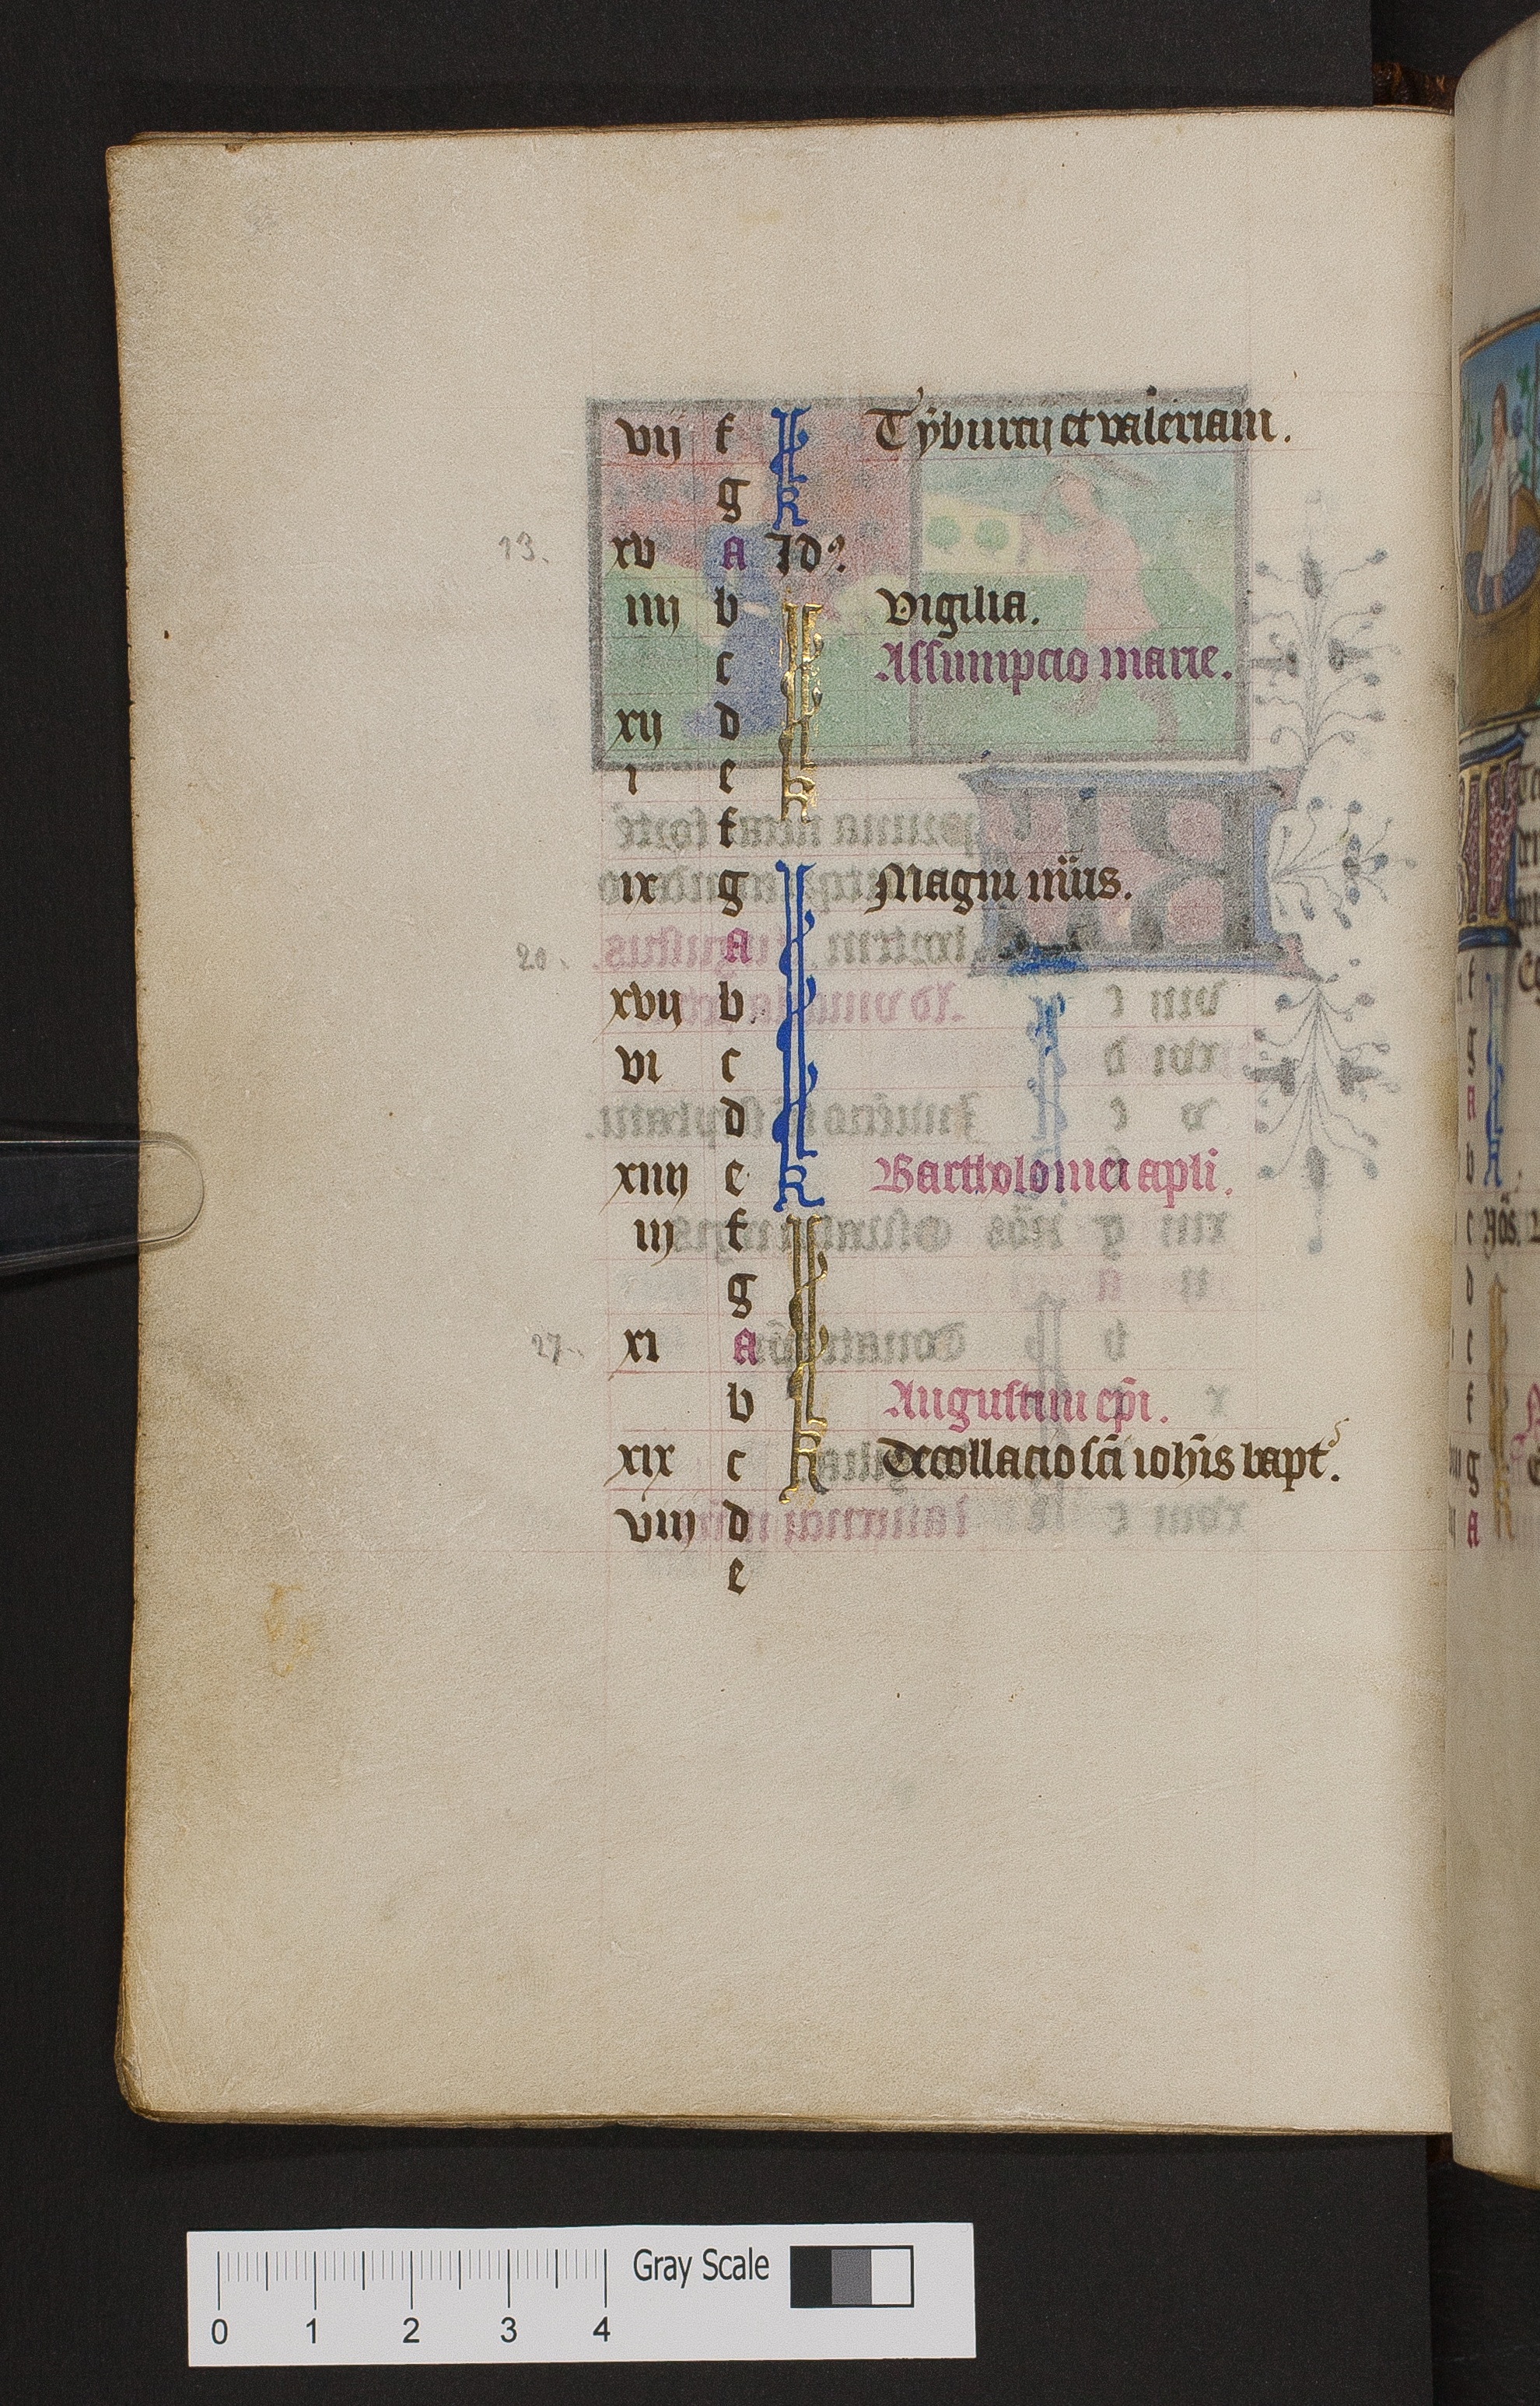 vij f kł Tyburcij et valeriani.
g k
13. xv A Id9
iiij b kł vigilia.
c Assumpcio marie.
xij d
i e k
f
ix g kł Magni m̄ris.
20. A
xvij b
vi c
d
xiiij e k Bartholomei apl̄i.
iij f kł
g
27. xi A
b Augustini ep̄i.
xix c k Decollacio sc̄i ioh̄is bapt.
viij d
e
Gray Scale
0 1 2 3 4